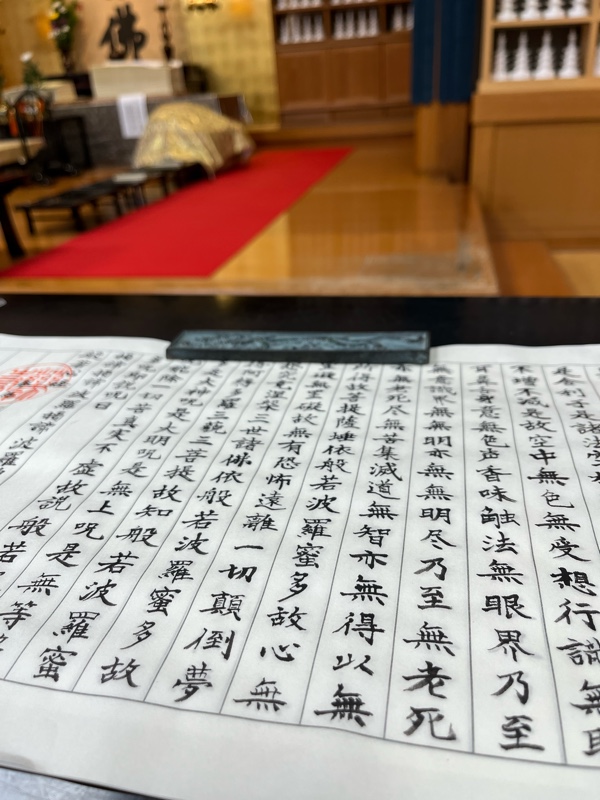 佛
舍利子是諸法空
不増不減是故空中無色無受想行識無
耳鼻舌身意無色声香味触法無眼界乃至
無意識界無無明亦無無明尽乃至無老死
亦無老死尽無苦集滅道無智亦無得以無
所得故菩提薩埵依般若波羅蜜多故心無
罣礙無罣礙故無有恐怖遠離一切顛倒夢
究竟涅槃三世諸佛依般若波羅蜜多故
得阿耨多羅三藐三菩提故知般若波羅蜜
是大神呪是大明呪是無上呪是無等
能除一切苦真実不虚故説般若
即説呪曰
羯諦波羅